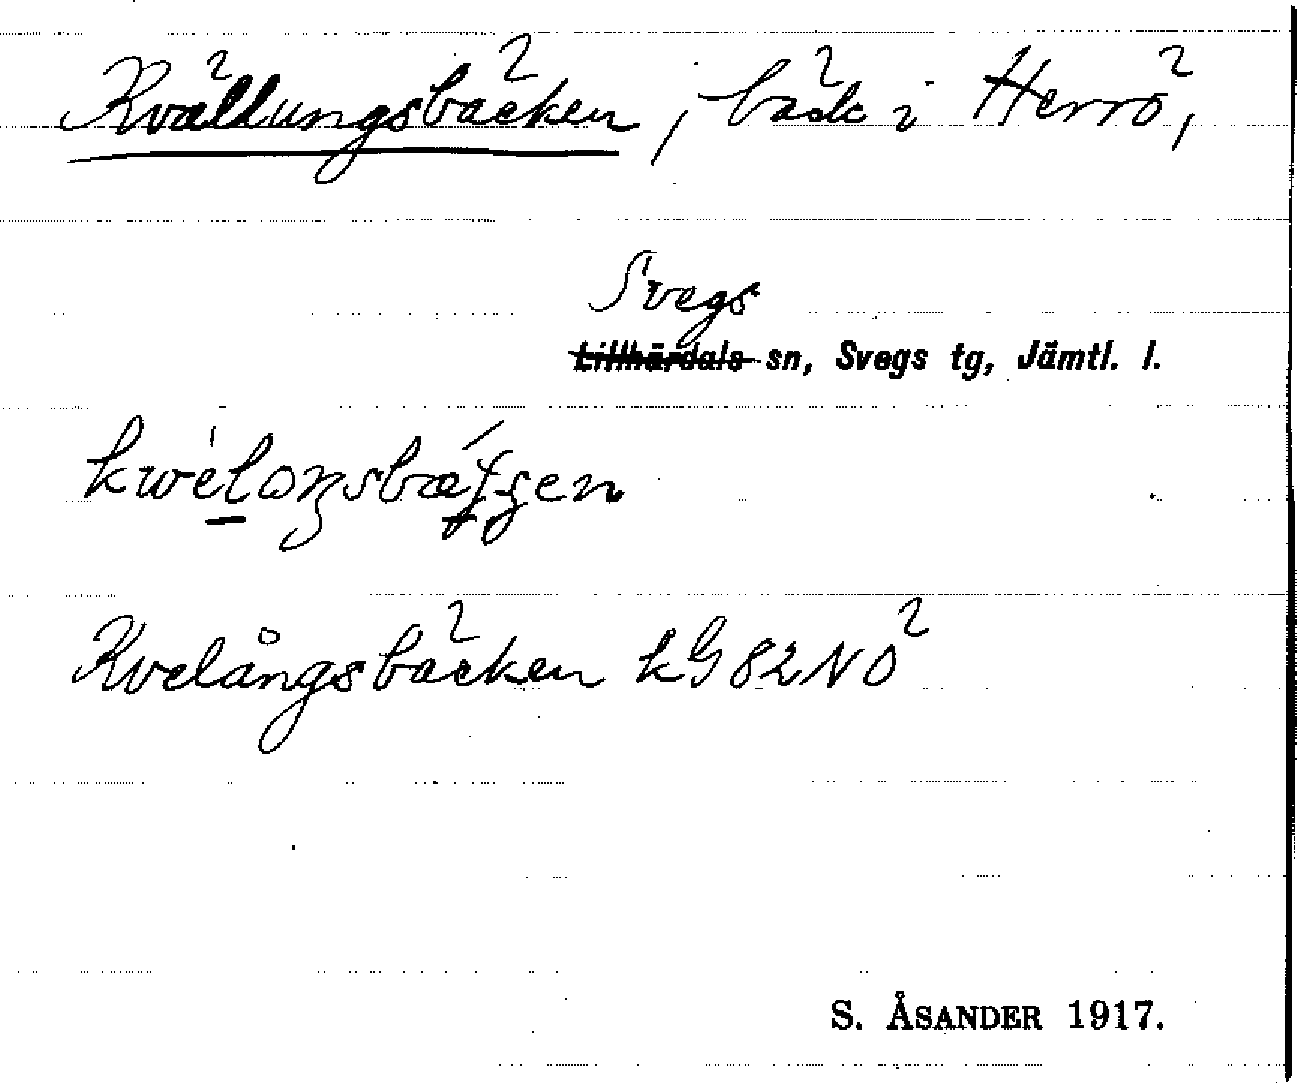 Kvällungsbäcken, bäck i Herrö,
Svegs
~~Lillhärdals~~ sn, Svegs tg, Jämtl. l.
Kvelångsbäcken kG 82 NÖ
S. ÅSANDER 1917.